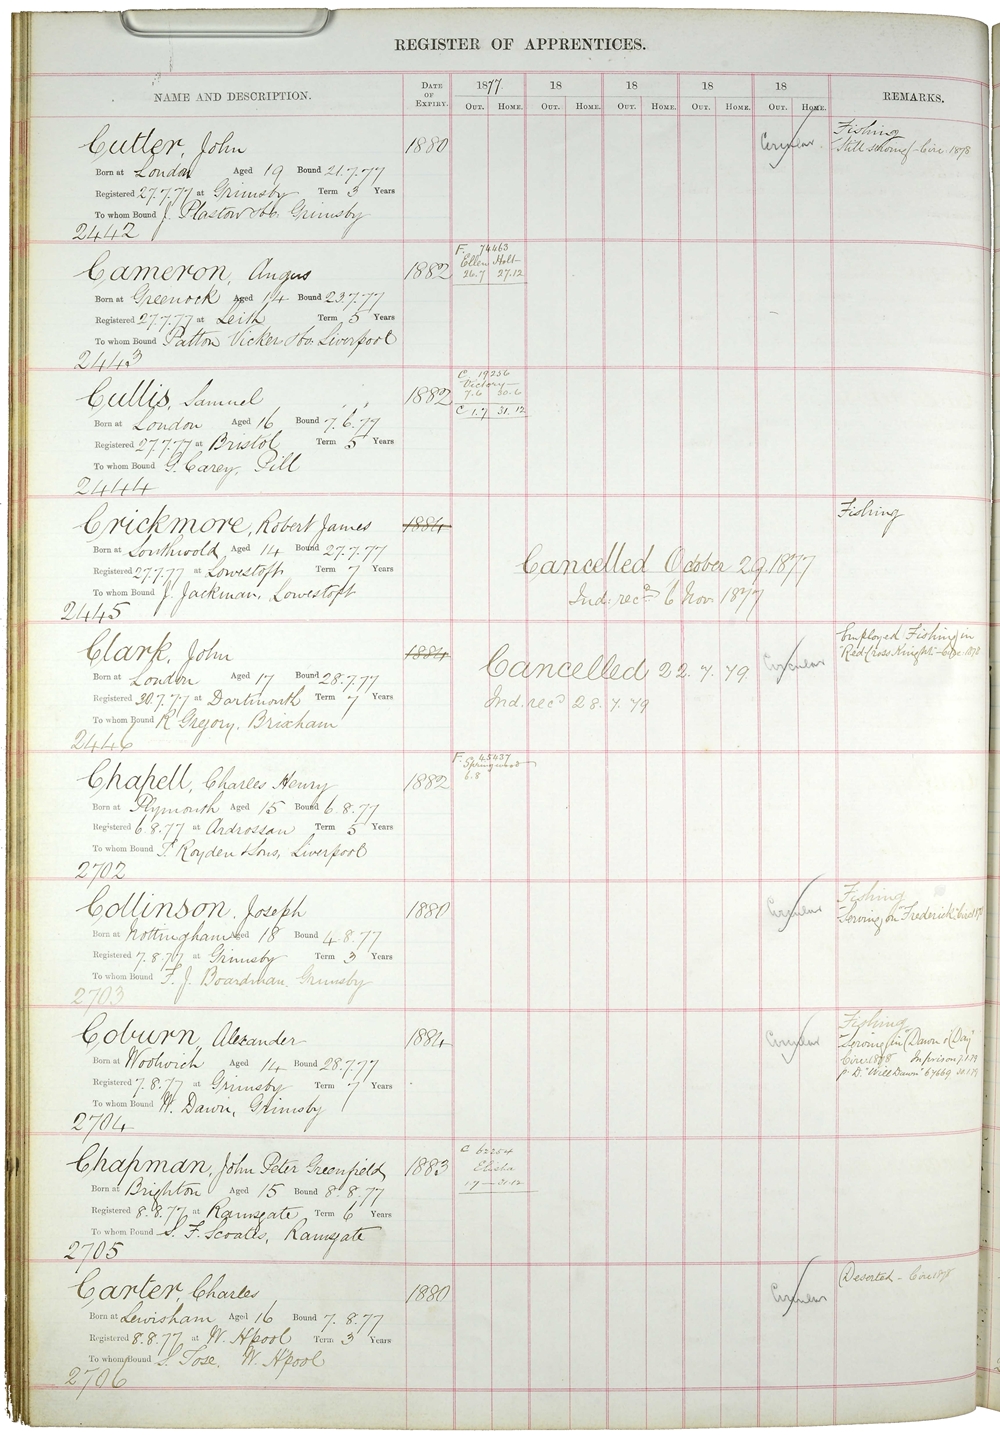 REGISTER OF APPRENTICES.
NAME AND DESCRIPTION. DATE OF EXPIRY. 1877 18 18 18 18 REMARKS.
OUT. HOME. OUT. HOME. OUT. HOME. OUT. HOME. OUT. HOME.
Cutler, John 1880 Circular Fishing
Born at London Aged 19 Bound 21.7.77 Still serving - Circ. 1878
Registered 27.7.77 at Grimsby Term 3 Years
To whom Bound J. Plastow & Co. Grimsby
2442
F. 74463
Ellen Holt
Cameron, Angus 1882 26.7 27.12
Born at Greenock Aged 14 Bound 23.7.77
Registered 27.7.77 at Leith Term 5 Years
To whom Bound Patton Vicker & Co. Liverpool
2443
C 19256
Victory
Cullis, Samuel 1882 7.6 30.6
C 1.7 31.12
Born at London Aged 16 Bound 7.6.77
Registered 27.7.77 at Bristol Term 5 Years
To whom Bound G. Carey, Pill
2444
Crickmore, Robert James 1884 Fishing
Born at Southwold Aged 14 Bound 27.7.77
Registered 27.7.77 at Lowestoft Term 7 Years Cancelled October 29, 1877
To whom Bound J. Jackman, Lowestoft Ind: recd 6 Nov. 1877
2445
Clark, John 1884 Circular Employed Fishing in
"Red Cross Knight" - Circ. 1878
Born at London Aged 17 Bound 28.7.77 Cancelled 22.7.79
Registered 30.7.77 at Dartmouth Term 7 Years Ind. recd 28.7.79
To whom Bound R Gregory, Brixham
2446
F. 45437
Springwood
Chapell, Charles Henry 1882 6.8
Born at Plymouth Aged 15 Bound 6.8.77
Registered 6.8.77 at Ardrossan Term 5 Years
To whom Bound T. Royden & Sons, Liverpool
2702
Collinson, Joseph 1880 Circular Fishing
Serving on "Frederick" Circ 1878
Born at Nottingham Aged 18 Bound 4.8.77
Registered 7.8.77 at Grimsby Term 3 Years
To whom Bound F. J. Boardman, Grimsby
2703
Coburn, Alexander 1884 Circular Fishing
Serving in "Dawn of Day"
Circ 1878 In prison 7.1.79
Born at Woolwich Aged 14 Bound 28.7.77
Registered 7.8.77 at Grimsby Term 7 Years
To whom Bound W. Dawn, Grimsby
2704
C 62204
Elisha
Chapman, John Peter Greenfield 1883 1.7 - 31.12
Born at Brighton Aged 15 Bound 8.8.77
Registered 8.8.77 at Ramsgate Term 6 Years
To whom Bound S. F. Scoates, Ramsgate
2705
Carter, Charles 1880 Circular Deserted - Circ 1878
Born at Lewisham Aged 16 Bound 7.8.77
Registered 8.8.77 at W. H'pool Term 3 Years
To whom Bound S. Tose, W. H'pool
2706